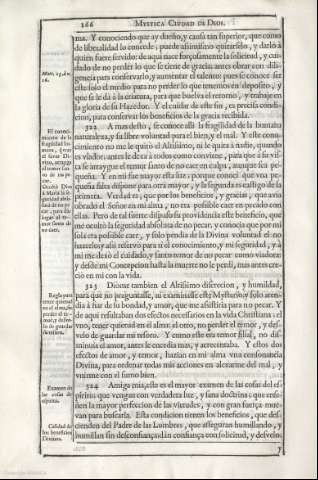 266 MYSTICA CIUDAD DE DIOS.
ma. Y conociendo que ay dueño, y causa tan superior, que como
de liberalidad lo concede, puede assimismo quitarselo, y darlo à
quien fuere servido: de aqui nace forçosamente la solicitud, y cui-
dado de no perder lo que se tiene de gracia; antes obrar con dili-
gencia para conservarlo, y aumentar el talento: pues se conoce ser
este solo el medio para no perder lo que tenemos en deposito, y
que se le dà à la criatura, para que buelva el retorno, y trabaje en
la gloria de su Hazedor. Y el cuidar de este fin, es precisa condi-
cion, para conservar los beneficios de la gracia recibida.
322 A mas desto, se conoce allì la fragilidad de la humana
naturaleza, y su libre voluntad para el bien, y el mal. Y este cono-
cimiento no me le quitò el Altissimo, ni le quita à nadie, quando
es viador: antes le dexa à todos como conviene, para que à su vis-
ta se arraygue el temor santo de no caer en culpa, aunque sea pe-
queña. Y en mi fue mayor esta luz: porque conocì que vna pe-
queña falta dispone para otra mayor, y la segunda es castigo de la
primera. Verdad es, que por los beneficios, y gracias, que avia
obrado el Señor en mi alma, no era possible caer en pecado con
ellas. Pero de tal suerte dispuso su providencia este beneficio, que
me ocultò la seguridad absoluta de no pecar, y conocia que por mi
sola era possible caer, y solo pendia de la Divina voluntad el no
hazerlo; assi reservò para sì el conocimiento, y mi seguridad, y à
mi me dexò el cuidado, y santo temor de no pecar como viadora;
y desde mi Concepcion hasta la muerte no le perdì, mas antes cre-
ciò en mì con la vida.
323 Diòme tambien el Altissimo discrecion, y humildad,
para que no preguntasse, ni examinasse este Mysterio, y solo aten-
dia à fiar de su bondad, y amor, que me assistiria para no pecar. Y
de aqui resultaban dos efectos necessarios en la vida Christiana: el
vno, tener quietud en el alma; el otro, no perder el temor, y des-
velo de guardar mi tesoro. Y como este era temor filial, no dis-
minuìa el amor, antes le encendia mas, y acrecentaba. Y estos dos
efectos de amor, y temor, hazian en mi alma vna consonancia
Divina, para ordenar todas mis acciones en alexarme del mal, y
vnirme con el sumo bien.
324 Amiga mia, este es el mayor examen de las cosas del es-
piritu: que vengan con verdadera luz, y sana doctrina: que ense-
ñen la mayor perfeccion de las virtudes, y con gran fuerça mue-
van para buscarla. Esta condicion tienen los beneficios, que des-
cienden del Padre de las Lumbres, que asseguran humillando, y
humillan sin desconfiança: dàn confiança con solicitud, y desvelo,
y
Regla para
Examen de
las cosas de
espiritu.
Calidad de
los beneficios
Divinos.